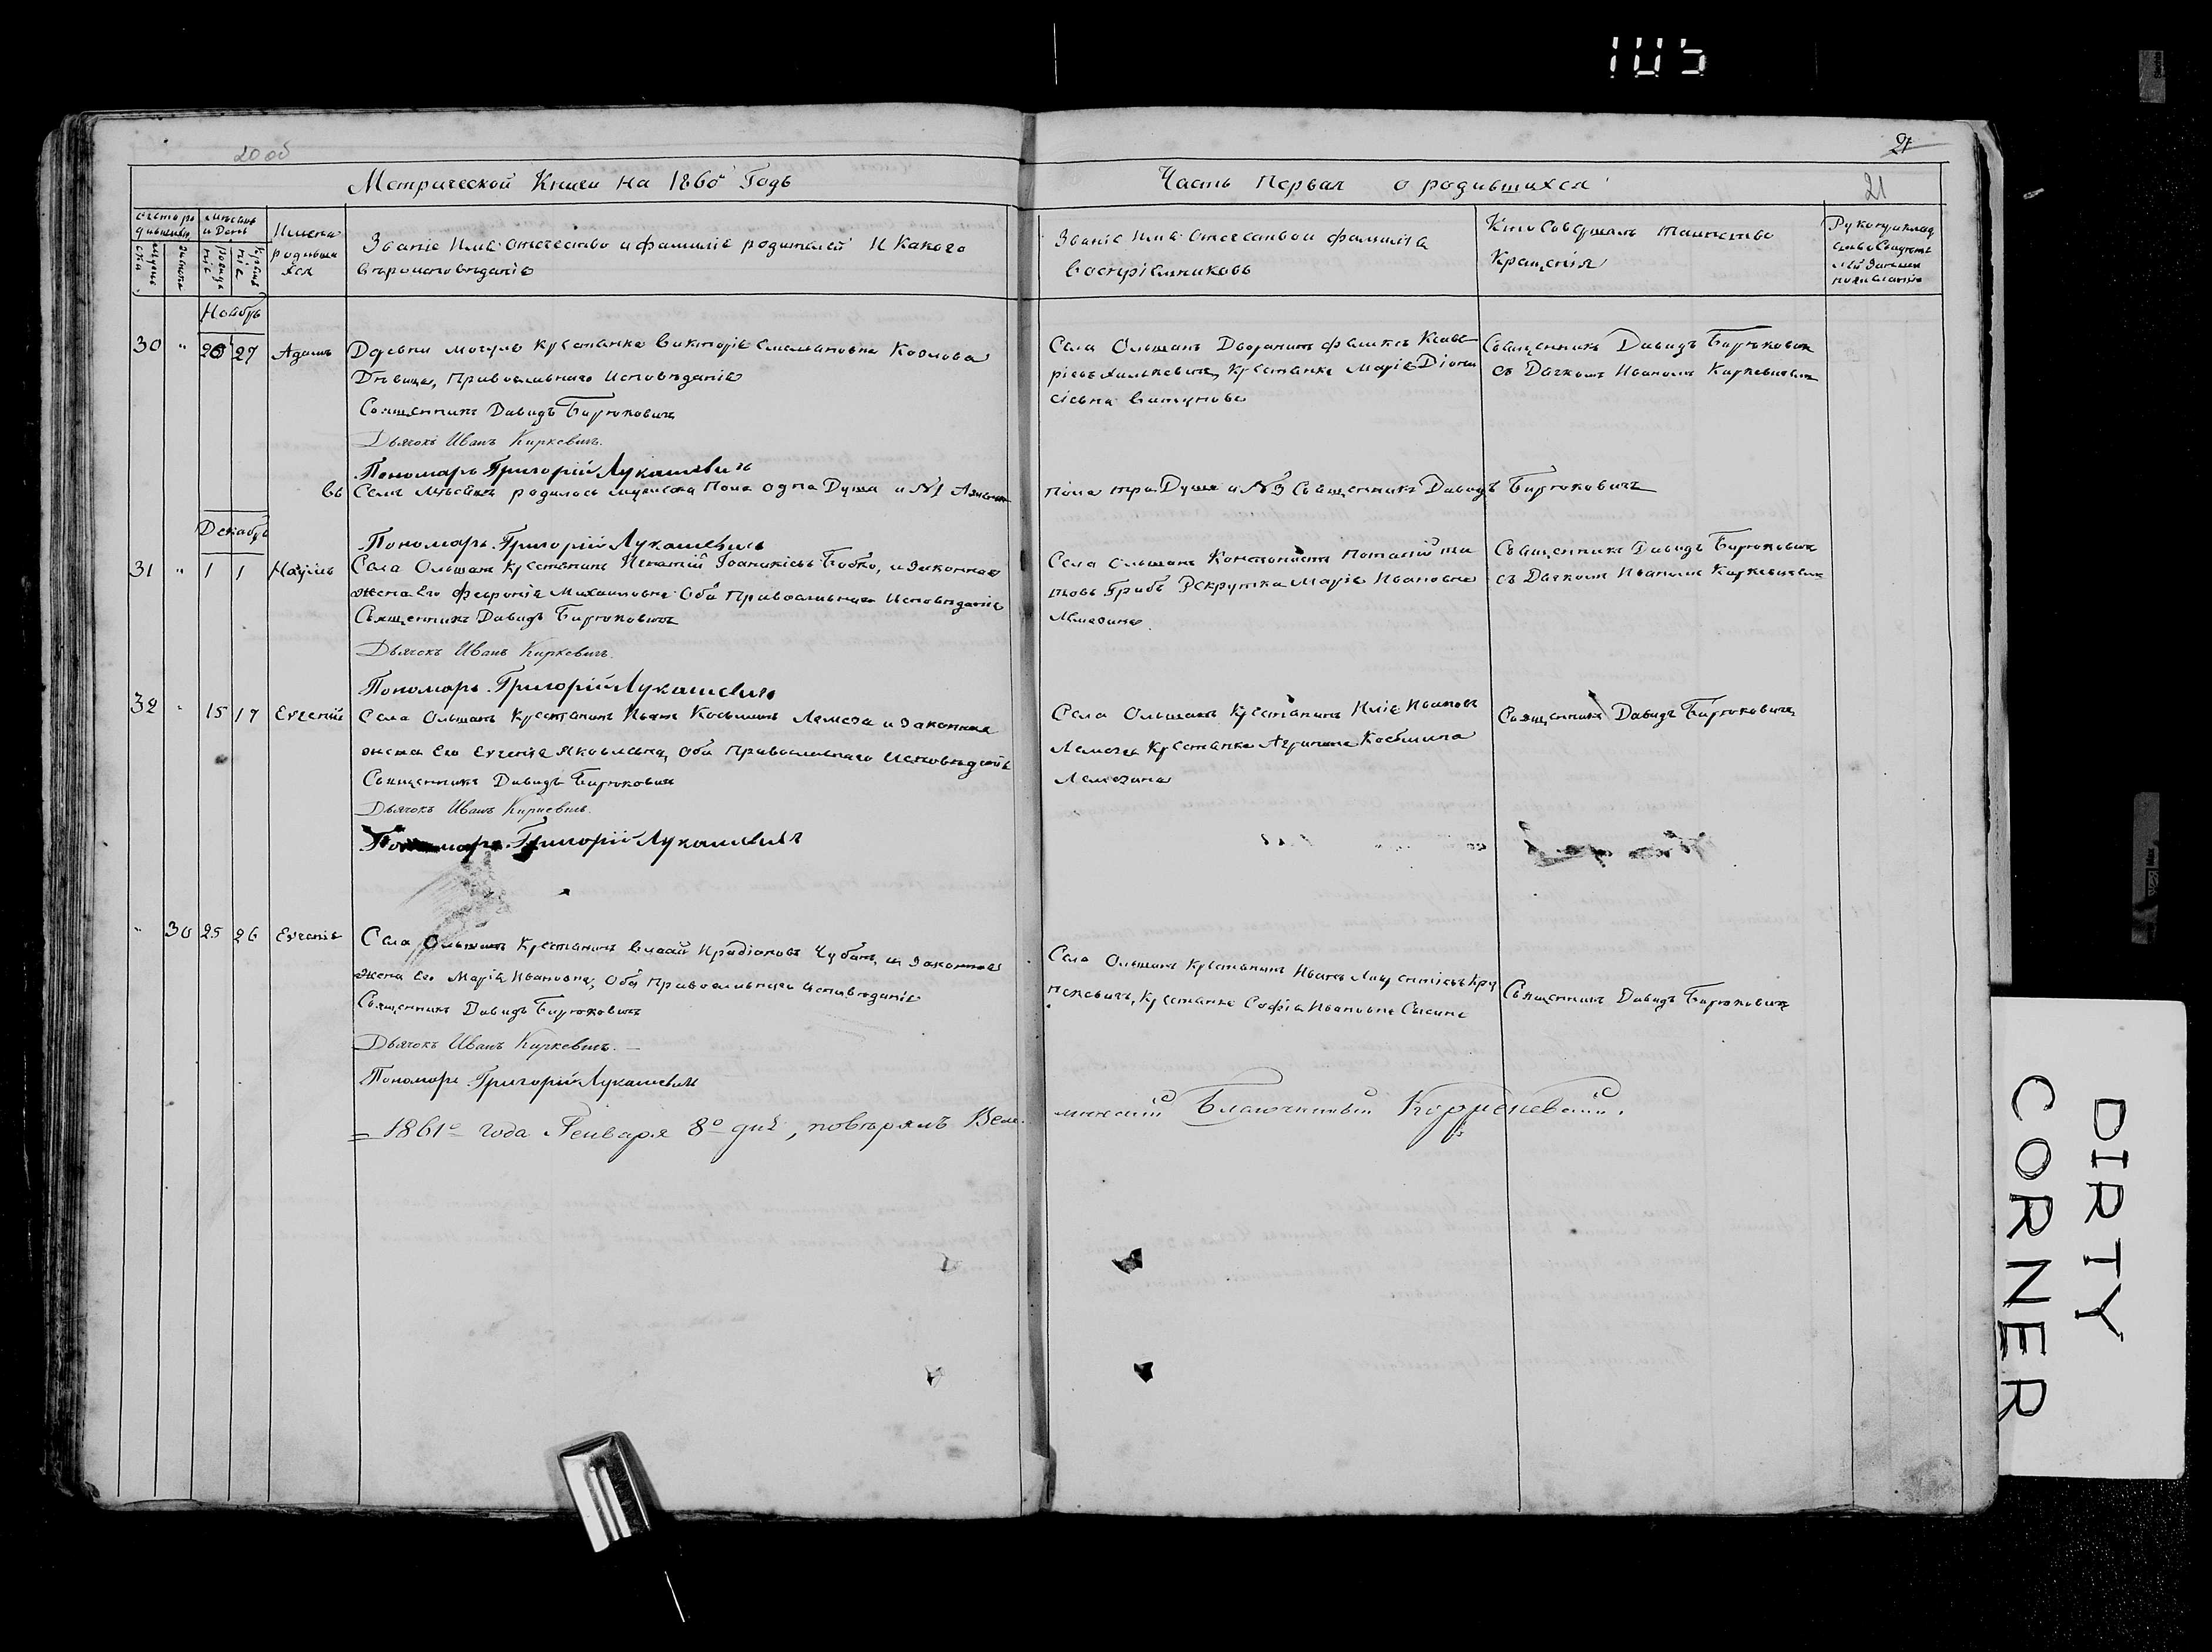 105
20 об
21
Метрической Книги на 1860й Годъ
Часть Первая о родившихся
21
Имена родивши хся
Званіе Имя Отечество и фамилія родителей И Какого
вѣроисповѣданія
Званіе Имя Отечество и фамилія
воспріемниковъ
Кто Совершалъ таинство
Крещенія
Ноябрь
30 " 26 27 Адамъ
Деревни Могуль крестьянка Викторія Емельяновна Козлова
Дѣвица, Православнаго Исповѣданія
Священникъ Давидъ Бирюковичъ
Дьячокъ Иванъ Киркевичъ.
Пономарь Григорій Лукашевичъ
Села Ольшанъ Дворянинъ
крестьянка Марія Діони
сіевна
Священникъ Давидъ Бирюковичъ
съ Дьячкомъ Иваномъ Киркевичемъ
въ Семъ Мѣсяцѣ родилось мужеска Пола одна Душа и №1 Женска
пола три Души и №3 Священникъ Давидъ Бирюковичъ
Декабрь
Пономарь Григорій Лукашевичъ
31 " 1 1 Наумъ
Села Ольшанъ Крестьянинъ Игнатій Іоаникіевъ Бобко, и законная
жена его Февронія Михаиловна Оба Православнаго Исповѣданія
Священникъ Давидъ Бирюковичъ
Дьячокъ Иванъ Киркевичъ.
Пономарь Григорій Лукашевичъ
Села Ольшанъ
Грибъ Рекрутка Марія Ивановна
Лемезина
Священникъ Давидъ Бирюковичъ
съ Дьячкомъ Иваномъ Киркевичемъ
32 " 15 17 Евгеній
Села Ольшанъ Крестьянинъ Иванъ Косьминъ Лемеза и Законная
жена Его Евгенія Яковлевна, Оба Православнаго Исповѣданія
Священникъ Давидъ Бирюковичъ
Дьячокъ Иванъ Киркевичъ.
Пономарь Григорій Лукашевичъ
Села Ольшанъ Крестьянинъ Илія Ивановъ
Лемеза Крестьянка Агрипина Косьмина
Лемезина
Священникъ Давидъ Бирюковичъ
" 30 25 26 Евгенія
Села Ольшанъ Крестьянинъ Власій Иродіоновъ Чубанъ, и Законная
жена Его Марія Ивановна, Оба Православнаго Исповѣданія
Священникъ Давидъ Бирюковичъ
Дьячокъ Иванъ Киркевичъ.
Пономарь Григорій Лукашевичъ
Села Ольшанъ Крестьянинъ Иванъ Лаврентіевъ Кру
пкевичъ, Крестьянка Софія Ивановна
Священникъ Давидъ Бирюковичъ
1861го года Генваря 8го дня, повѣрялъ
Благочинный
DIRTY
CORNER